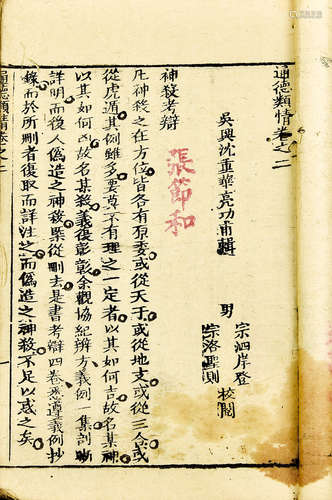 通德類情卷之二
吳興沈重華亮功甫輯
男
宗泗岸登
宗洛聖則
校閱
張節和
神殺考辯
凡神殺之在方位皆各有原委或從天干或從地支或從三合或
從虎遁其例雖多要莫不有理之一定者以其如何吉故名某神
以其如何凶故名某殺義復彰彰余觀協紀辨方義例一集剖晰
詳明而後人偽造之神殺槩從刪去是書考辯四卷悉遵義例抄
錄而於所刪者復取而詳注之而偽造之神殺不足以惑之矣
通德類情卷之二